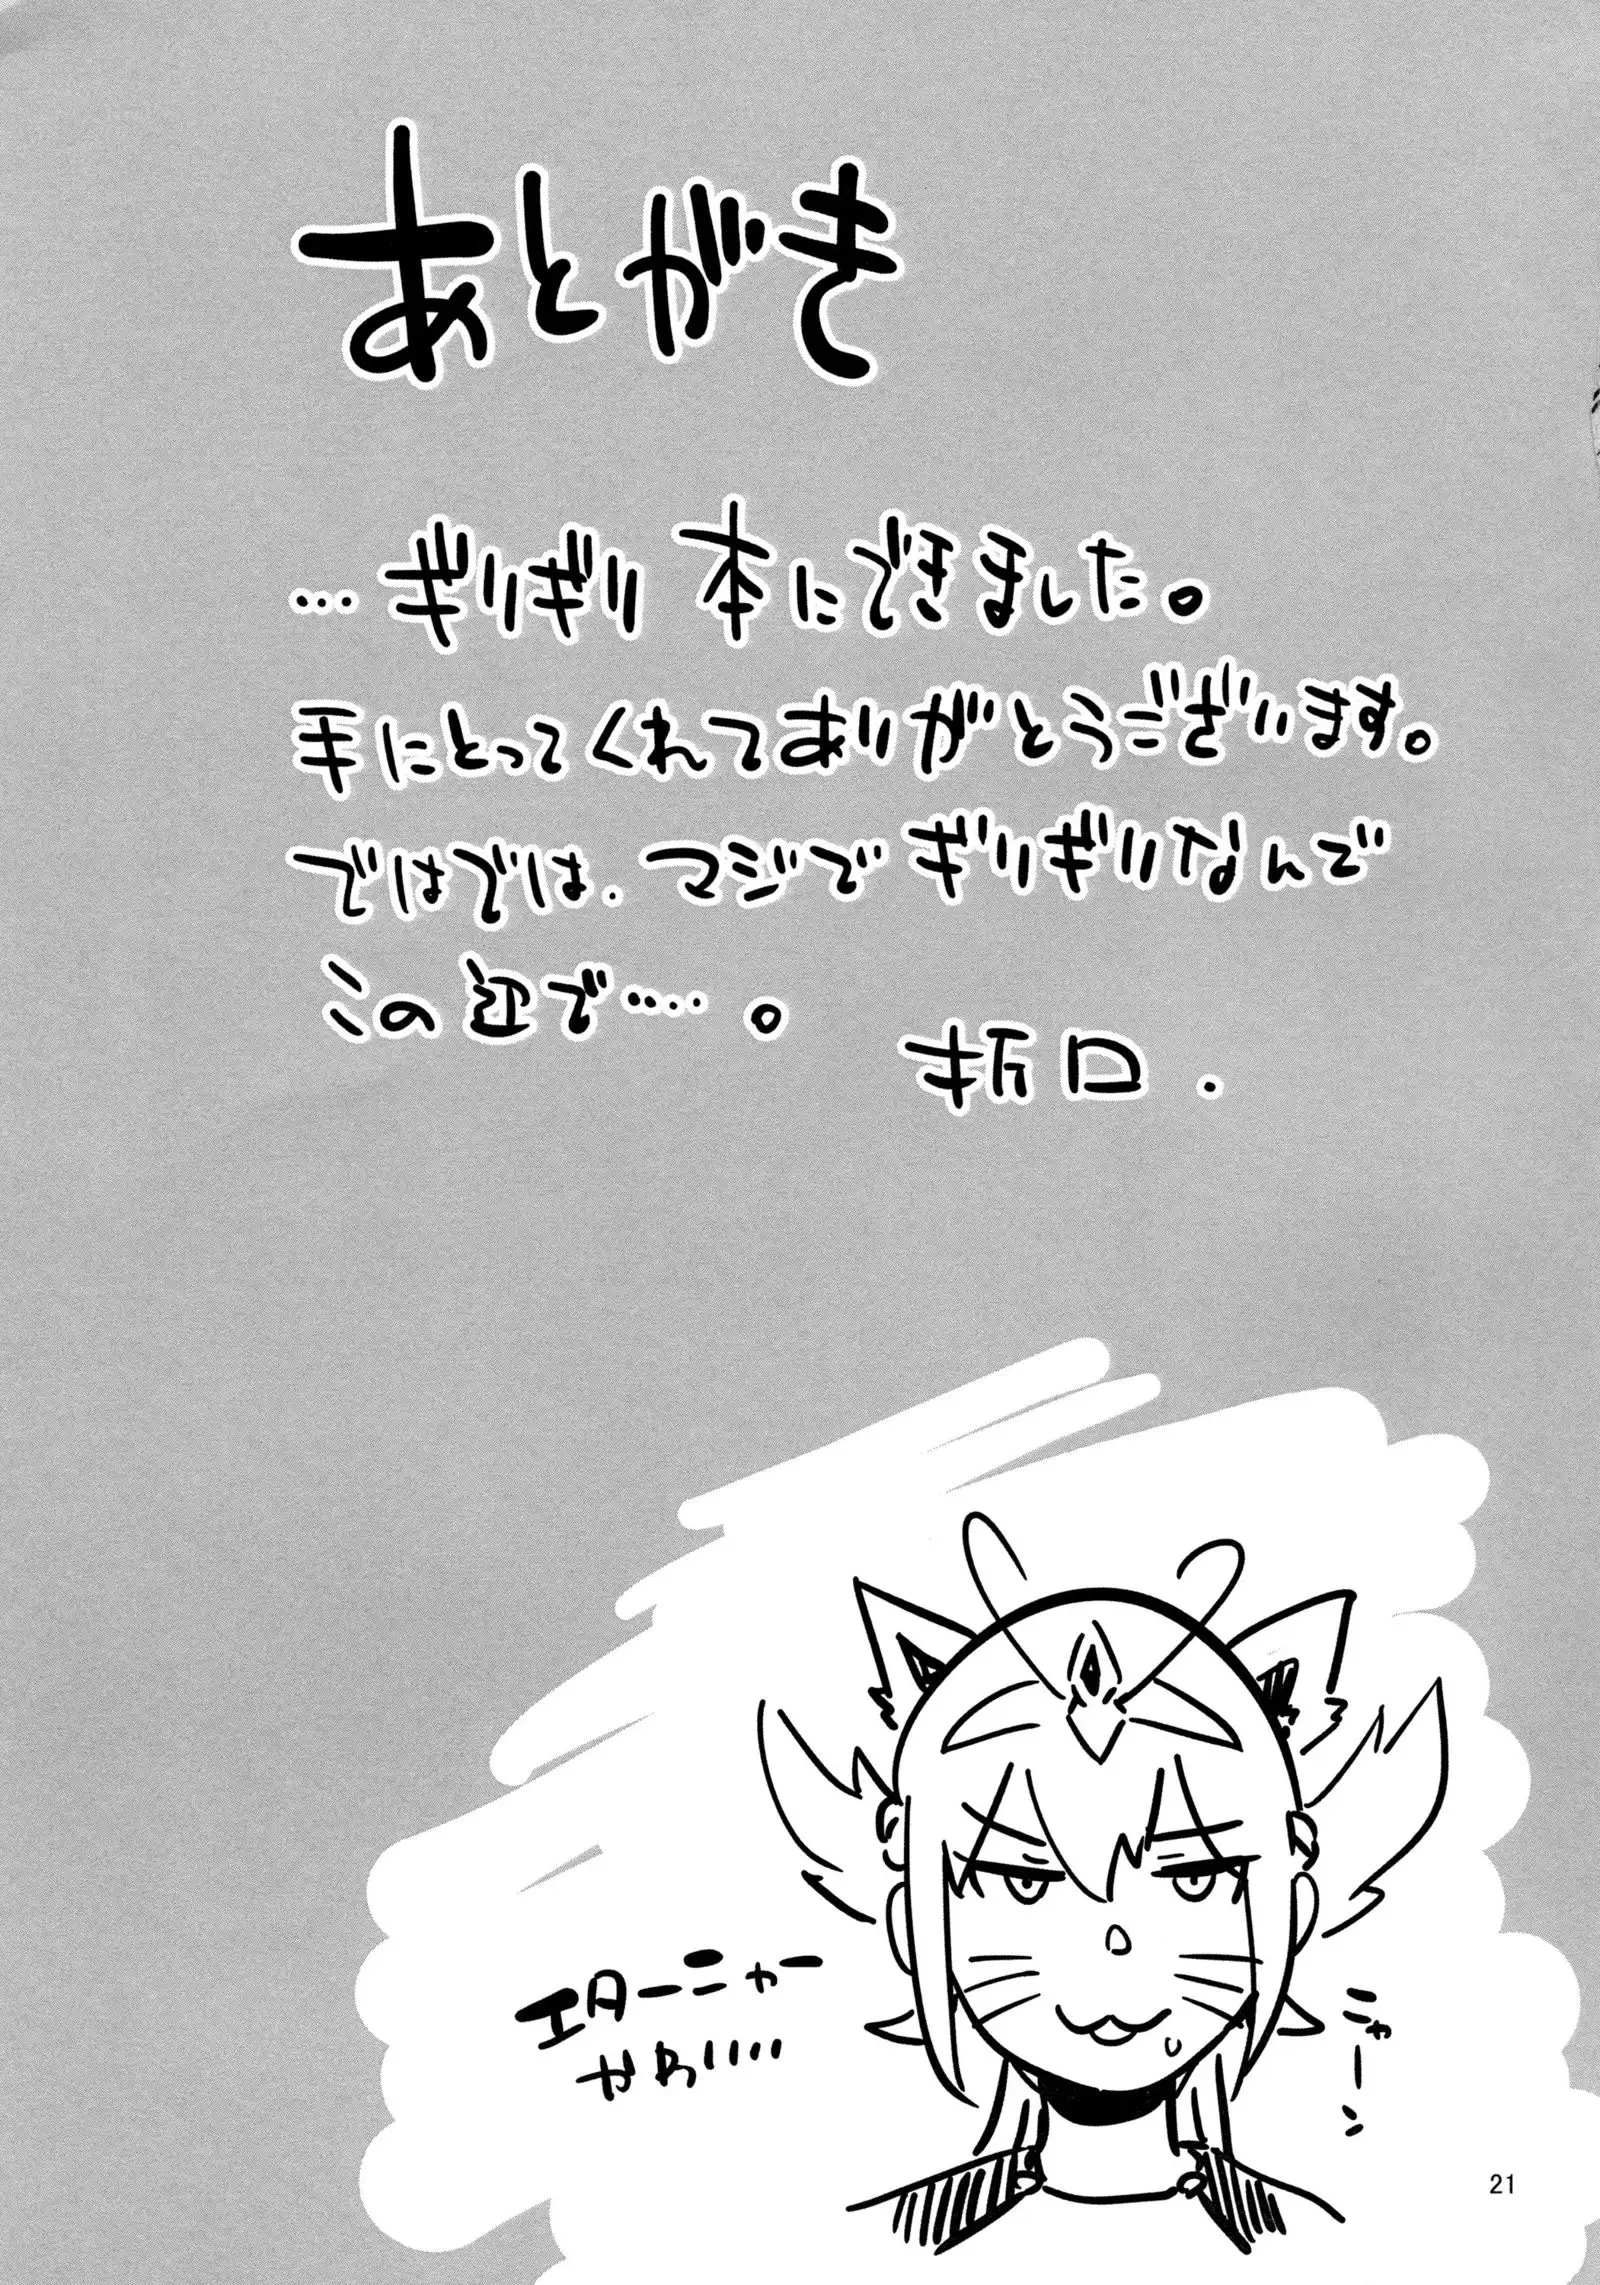 あとがき
…ギリギリ 本にできました。
手にとってくれてありがとうございます。
ではでは、マジでギリギリなんで
この辺で……。
折口.
エターニャー
かわいい…
ニャーン
21